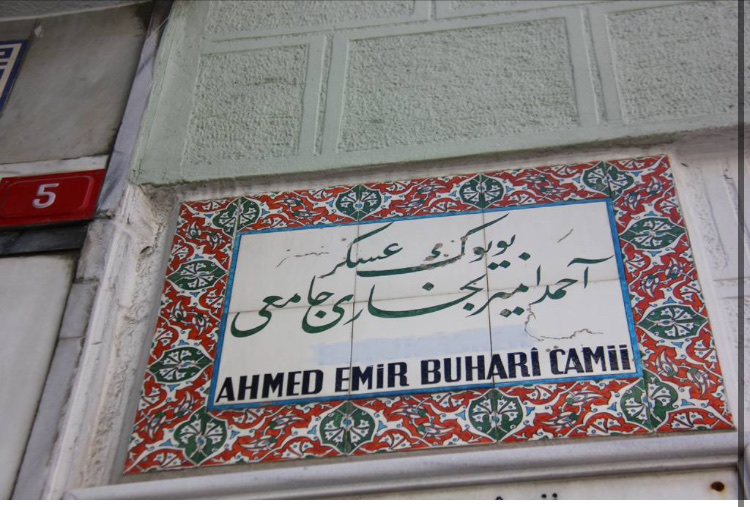 5
بویوك عسكر
آحمد امیر بخاری جامعی
AHMED EMİR BUHARÎ CAMİİ